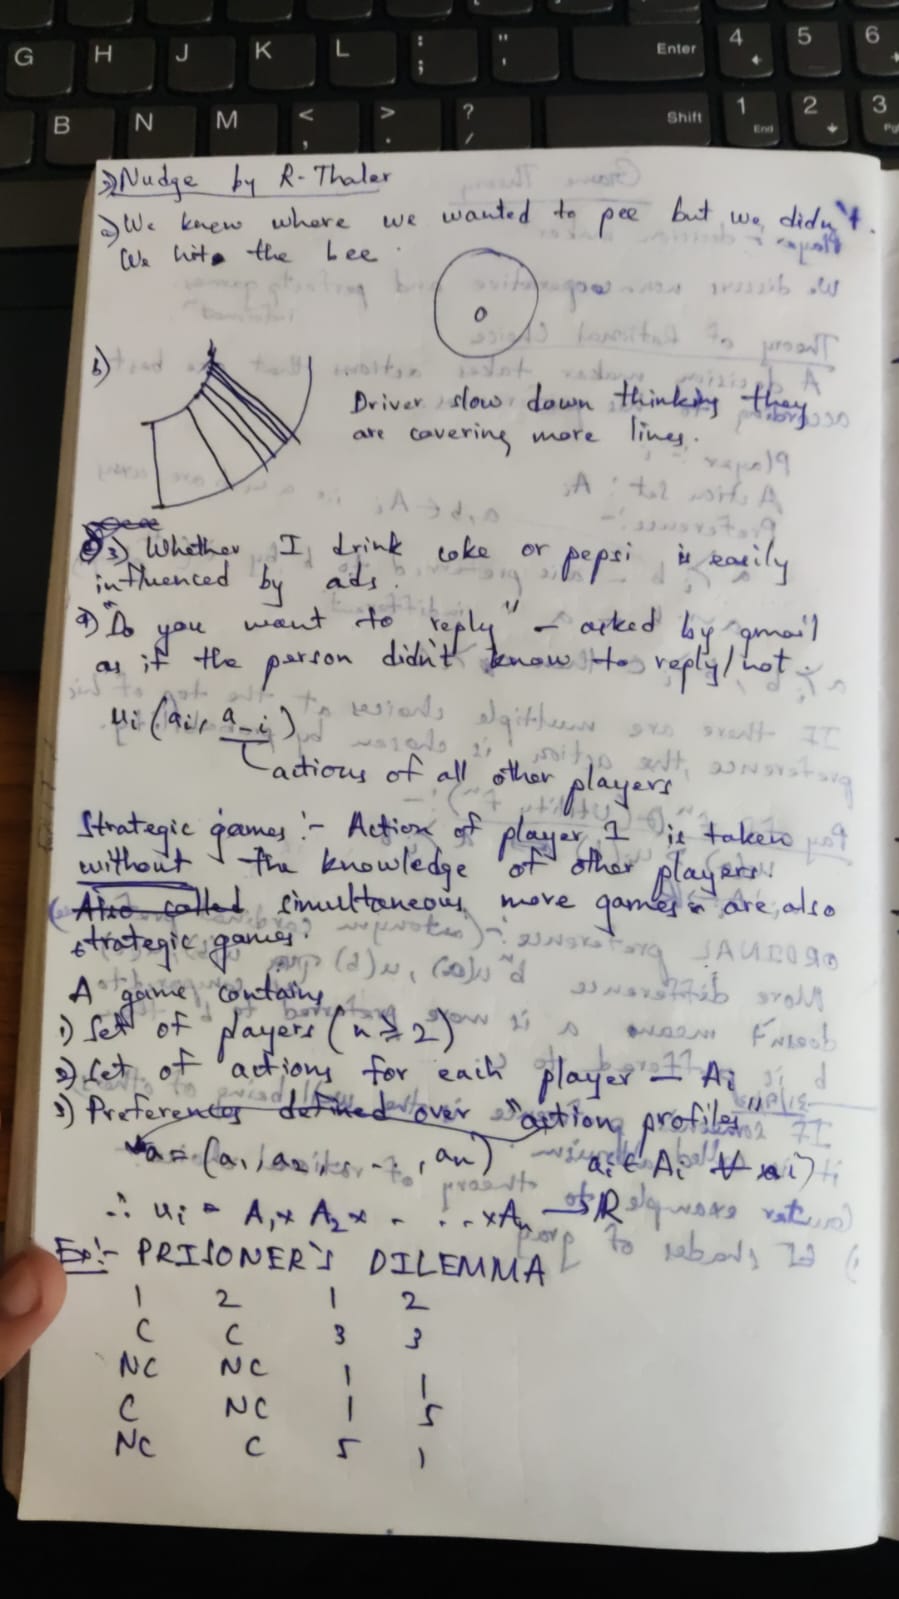 G H J K L : ; " ' Enter 4 5 6
B N M < , > . ? / Shift 1 End 2 3
2) Nudge by R-Thaler
a) We knew where we wanted to pee but we didn't.
We hit the bee.
b)
Driver slow down thinking they
are covering more lines.
3) Whether I drink coke or pepsi is easily
influenced by ads.
4) "Do you want to reply" - asked by gmail
as if the person didn't know to reply/not.
ui(ai, a-i)
actions of all other players
Strategic games :- Action of player 1 is taken
without the knowledge of other players.
(Also called simultaneous move games are also
strategic games.
A game contains
1) Set of players (n ≥ 2)
2) Set of actions for each player - Ai
3) Preferences defined over "action profiles"
a = (a1, a2, . . . , an) ai ∈ Ai ∀ i
∴ ui = A1 x A2 x . . . x An → R
Ex:- PRISONER'S DILEMMA
1 2 1 2
C C 3 3
NC NC 1 1
C NC 1 5
NC C 5 1